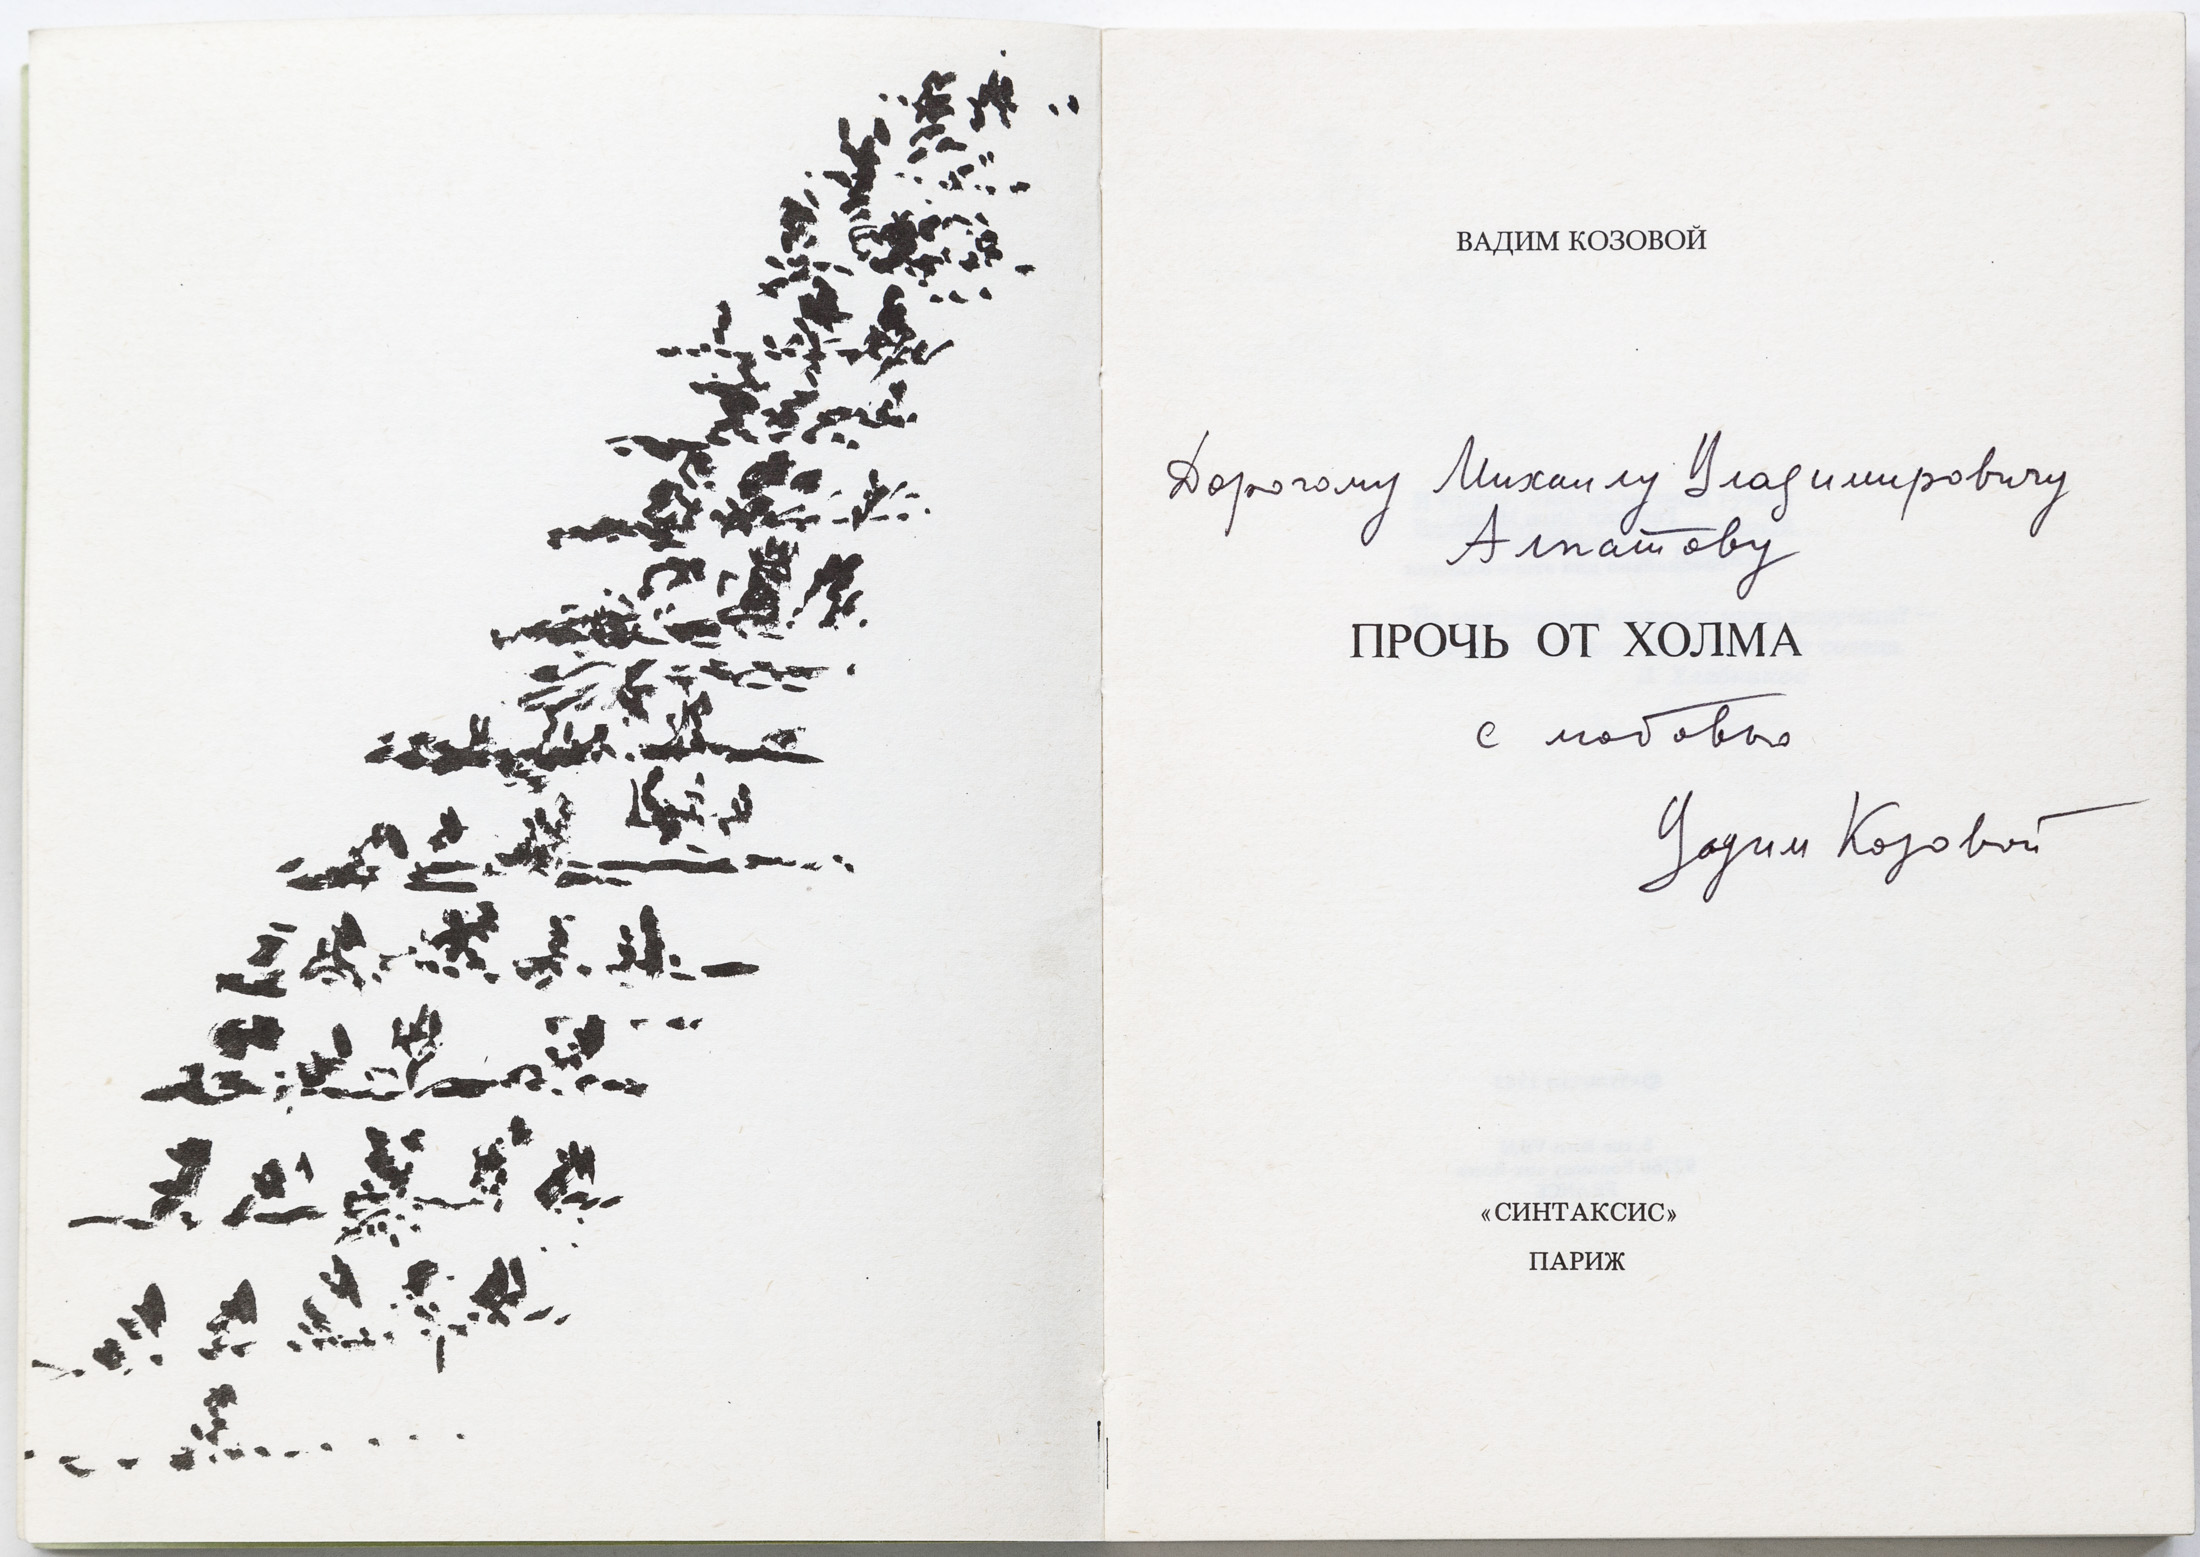 ВАДИМ КОЗОВОЙ
Дорогому Михаилу Владимировичу
Алпатову
ПРОЧЬ ОТ ХОЛМА
с любовью
Вадим Козовой
«СИНТАКСИС»
ПАРИЖ